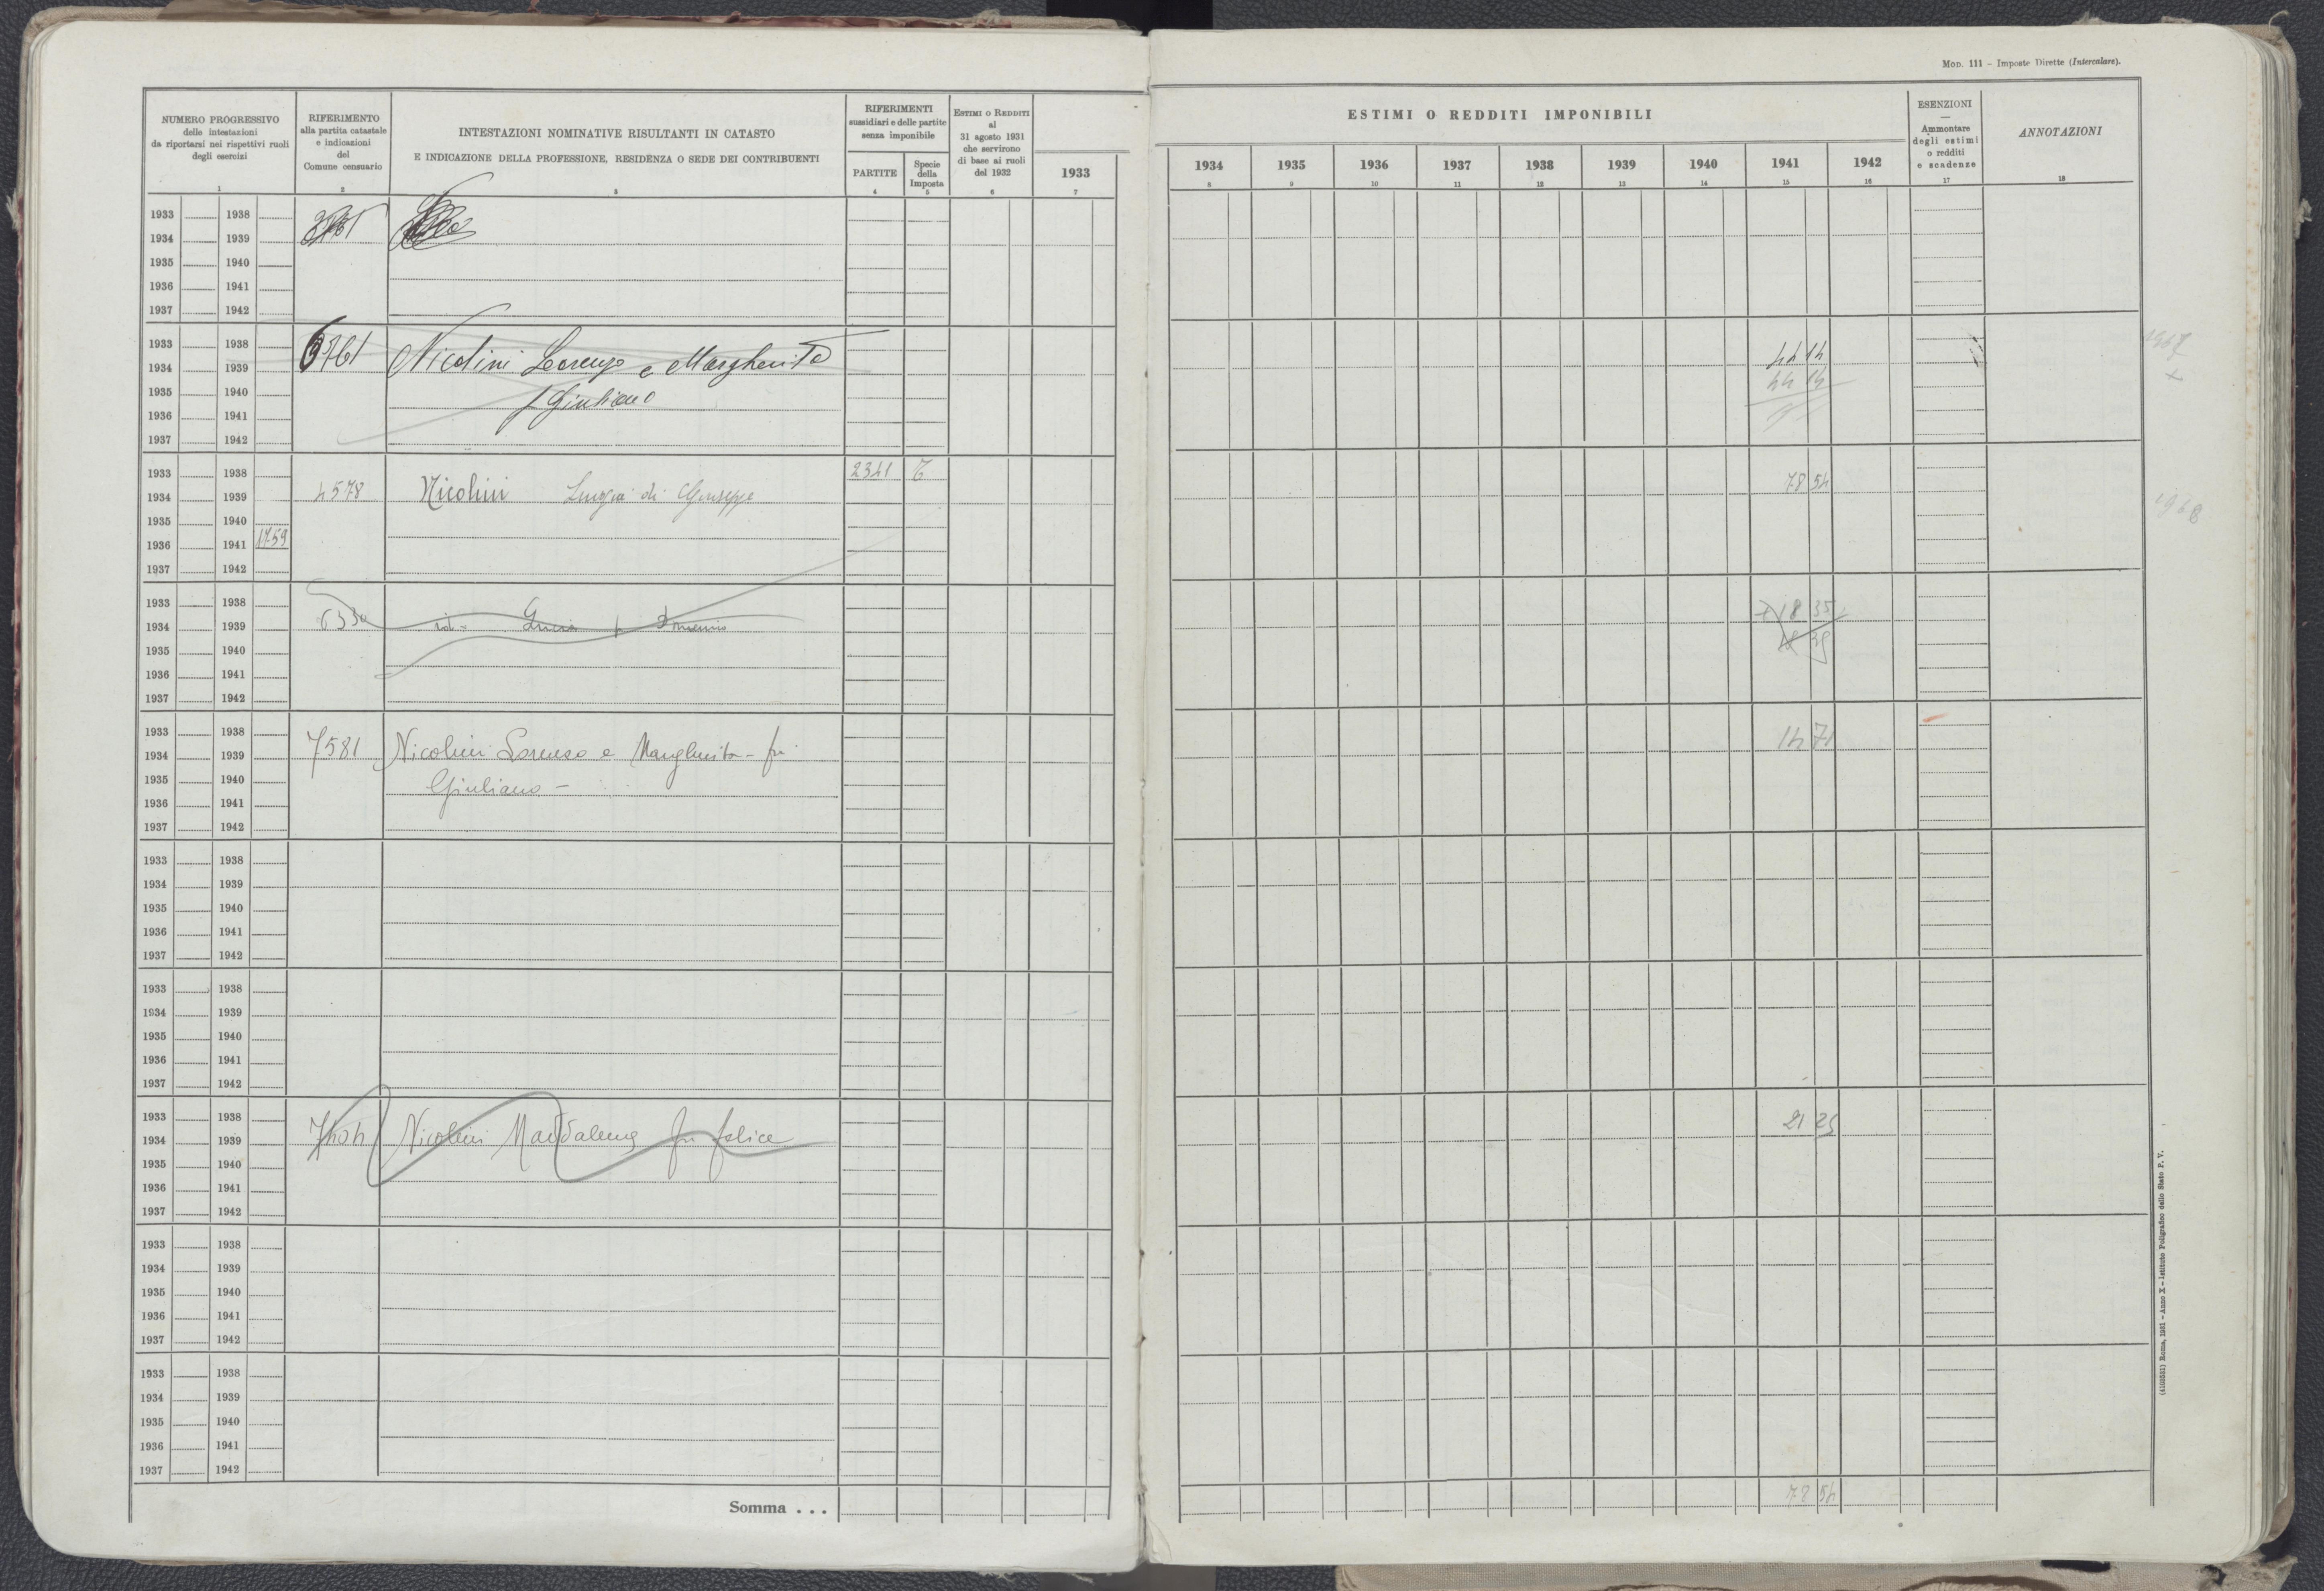 Mod. 111 – Imposte Dirette (Intercalare).
NUMERO PROGRESSIVO
delle intestazioni
da riportarsi nei rispettivi ruoli
degli esercizi
1
RIFERIMENTO
alla partita catastale
e indicazioni
del
Comune censuario
2
INTESTAZIONI NOMINATIVE RISULTANTI IN CATASTO
E INDICAZIONE DELLA PROFESSIONE, RESIDENZA O SEDE DEI CONTRIBUENTI
3
RIFERIMENTI
sussidiari e delle partite
senza imponibile
PARTITE
4
Specie
della
Imposta
5
Estimi o Redditi
al
31 agosto 1931
che servirono
di base ai ruoli
del 1932
6
1933
7
ESTIMI O REDDITI IMPONIBILI
1934 1935 1936 1937 1938 1939 1940 1941 1942
8 9 10 11 12 13 14 15 16
ESENZIONI
—
Ammontare
degli estimi
o redditi
e scadenze
17
ANNOTAZIONI
18
1933 1938
1934 1939
1935 1940
1936 1941
1937 1942
1933 1938
6761 Nicolini Lorenzo e Margherita 44 14
1934 1939
44 14
1935 1940 f Giuliano
1936 1941
1937 1942
1933 1938 2341 T
1934 1939 4578 Nicolini Luigia di Giuseppe 78 54
1935 1940
1936 1941 1759
1937 1942
1933 1938 18 35
1934 1939 6330 id - Lucia f Domenico
1935 1940 18 35
1936 1941
1937 1942
1933 1938
1934 1939 7581 Nicolini Lorenzo e Margherita - fu 14 71
1935 1940 Giuliano -
1936 1941
1937 1942
1933 1938
1934 1939
1935 1940
1936 1941
1937 1942
1933 1938
1934 1939
1935 1940
1936 1941
1937 1942
1933 1938 21 25
1934 1939 7404 Nicolini Maddalena fu felice
1935 1940
1936 1941
1937 1942
1933 1938
1934 1939
1935 1940
1936 1941
1937 1942
1933 1938
1934 1939
1935 1940
1936 1941
1937 1942
Somma . . . 78 54
(4103531) Roma, 1931 – Anno X – Istituto Poligrafico dello Stato P. V.